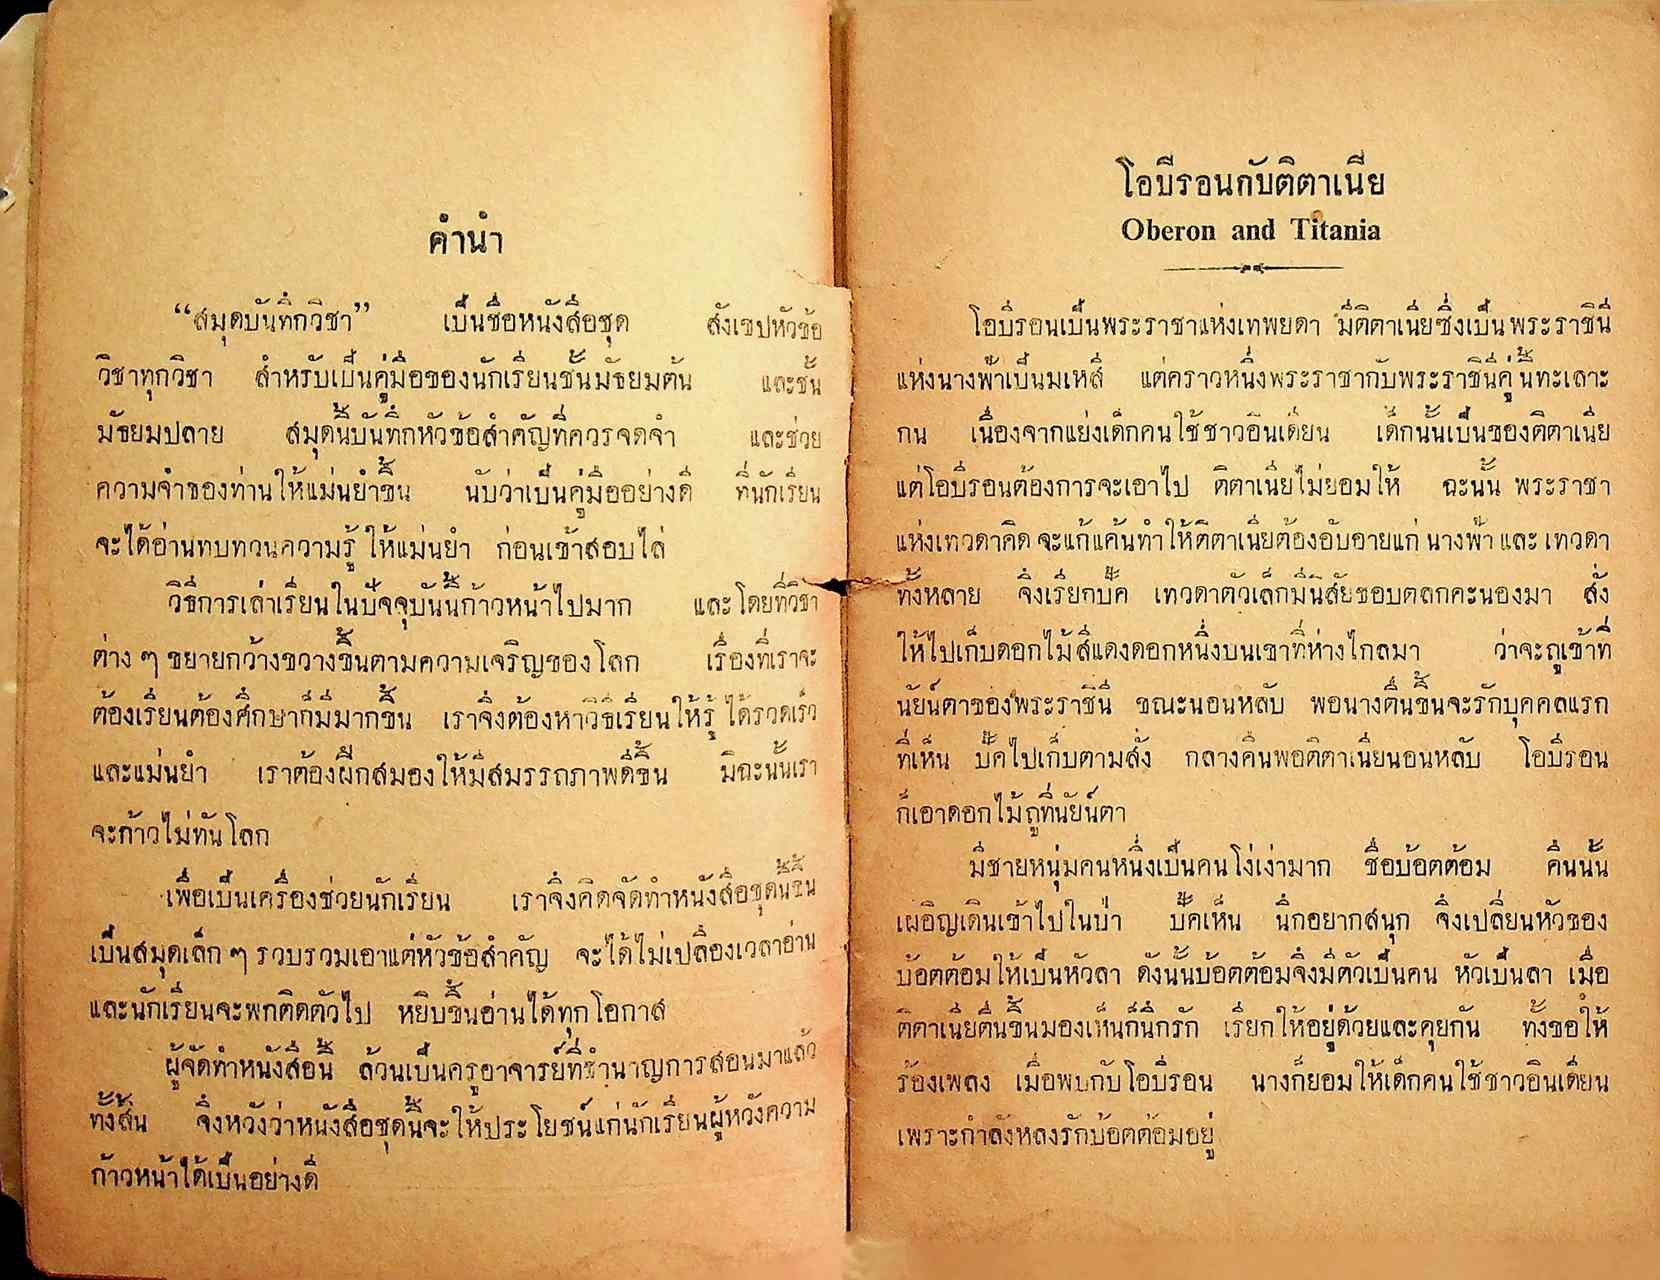 คำนำ
“สมุดบันทึกวิชา” เป็นชื่อหนังสือชุด สังเขปหัวข้อ
วิชาทุกวิชา สำหรับเป็นคู่มือของนักเรียนชั้นมัธยมต้น และชั้น
มัธยมปลาย สมุดนี้บันทึกหัวข้อสำคัญที่ควรจดจำ และช่วย
ความจำของท่านให้แม่นยำขึ้น นับว่าเป็นคู่มืออย่างดี ที่นักเรียน
จะได้อ่านทบทวนความรู้ ให้แม่นยำ ก่อนเข้าสอบไล่
วิธีการเล่าเรียนในปัจจุบันนี้ก้าวหน้าไปมาก และโดยที่วิชา
ต่าง ๆ ขยายกว้างขวางขึ้นตามความเจริญของโลก เรื่องที่เราจะ
ต้องเรียนต้องศึกษาก็มีมากขึ้น เราจึงต้องหาวิธีเรียนให้รู้ ได้รวดเร็ว
และแม่นยำ เราต้องฝึกสมองให้มีสมรรถภาพดีขึ้น มิฉะนั้นเรา
จะก้าวไม่ทันโลก
เพื่อเป็นเครื่องช่วยนักเรียน เราจึงคิดจัดทำหนังสือชุดนี้ขึ้น
เป็นสมุดเล็ก ๆ รวบรวมเอาแต่หัวข้อสำคัญ จะได้ไม่เปลืองเวลาอ่าน
และนักเรียนจะพกติดตัวไป หยิบขึ้นอ่านได้ทุกโอกาส
ผู้จัดทำหนังสือนี้ ล้วนเป็นครูอาจารย์ที่ชำนาญการสอนมาแล้ว
ทั้งสิ้น จึงหวังว่าหนังสือชุดนี้จะให้ประโยชน์แก่นักเรียนผู้หวังความ
ก้าวหน้าได้เป็นอย่างดี
โอบีรอนกับติตาเนีย
Oberon and Titania
โอบีรอนเป็นพระราชาแห่งเทพยดา มีติตาเนียซึ่งเป็นพระราชินี
แห่งนางฟ้าเป็นมเหสี แต่คราวหนึ่งพระราชากับพระราชินีคู่นี้ทะเลาะ
กัน เนื่องจากแย่งเด็กคนใช้ชาวอินเดียน เด็กนั้นเป็นของติตาเนีย
แต่โอบีรอนต้องการจะเอาไป ติตาเนียไม่ยอมให้ ฉะนั้น พระราชา
แห่งเทวดาคิดจะแก้แค้นทำให้ติตาเนียต้องอับอายแก่นางฟ้า และ เทวดา
ทั้งหลาย จึงเรียกปั๊ค เทวดาตัวเล็กมีนิสัยชอบตลกคะนองมา สั่ง
ให้ไปเก็บดอกไม้สีแดงดอกหนึ่งบนเขาที่ห่างไกลมา ว่าจะถูเข้าที่
นัยน์ตาของพระราชินี ขณะนอนหลับ พอนางตื่นขึ้นจะรักบุคคลแรก
ที่เห็น ปั๊คไปเก็บตามสั่ง กลางคืนพอติตาเนียนอนหลับ โอบีรอน
ก็เอาดอกไม้ถูที่นัยน์ตา
มีชายหนุ่มคนหนึ่งเป็นคนโง่เง่ามาก ชื่อบ้อตต้อม คืนนั้น
เผอิญเดินเข้าไปในป่า ปั๊คเห็น นึกอยากสนุก จึงเปลี่ยนหัวของ
บ้อตต้อมให้เป็นหัวลา ดังนั้นบ้อตต้อมจึงมีตัวเป็นคน หัวเป็นลา เมื่อ
ติตาเนียตื่นขึ้นมองเห็นก็นึกรัก เรียกให้อยู่ด้วยและคุยกัน ทั้งขอให้
ร้องเพลง เมื่อพบกับโอบีรอน นางก็ยอมให้เด็กคนใช้ชาวอินเดียน
เพราะกำลังหลงรักบ้อตต้อมอยู่